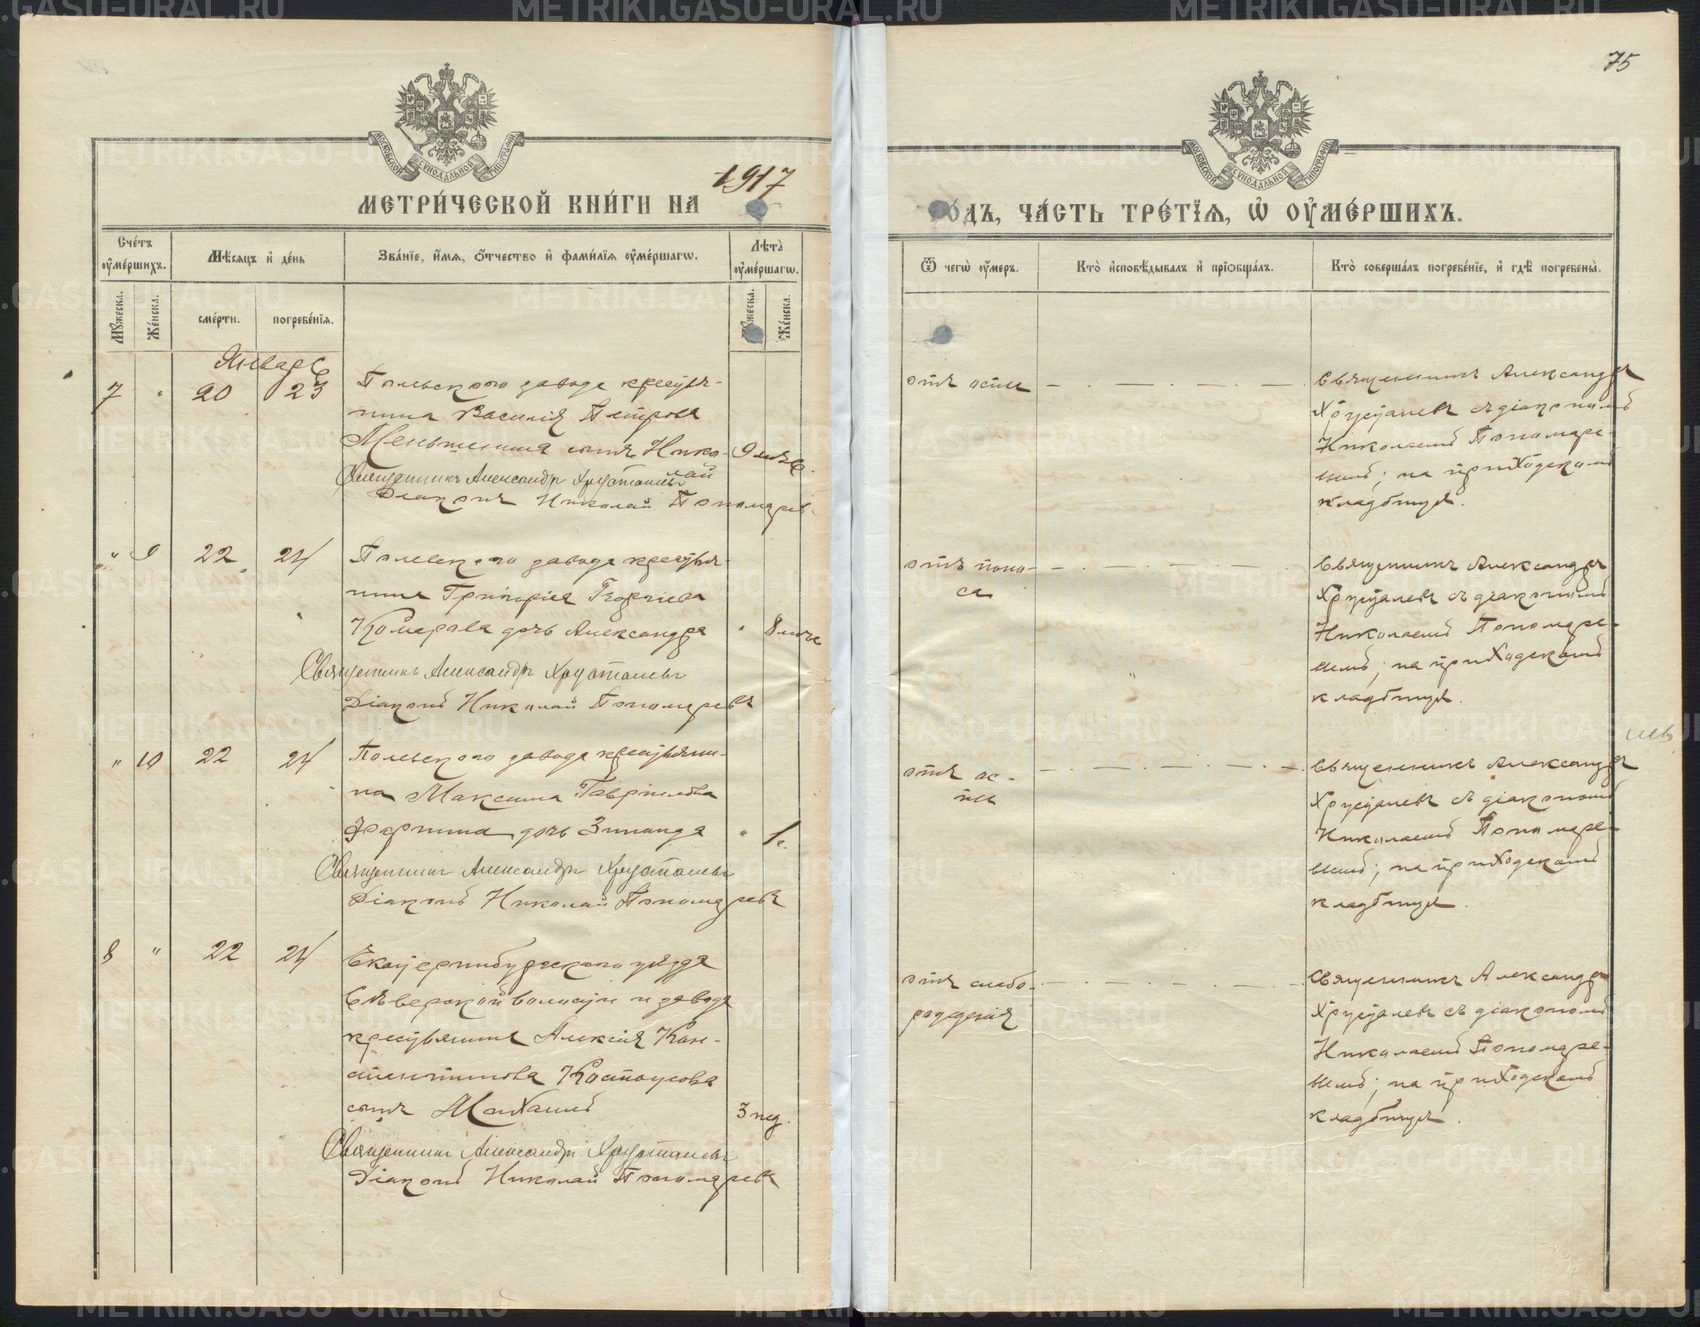 75
МОСКОВСКОЙ СѴНОДАЛЬНОЙ ТИПОГРАФІИ
МОСКОВСКОЙ СѴНОДАЛЬНОЙ ТИПОГРАФІИ
МЕТРИ́ЧЕСКОЙ КНИ́ГИ НА 1917
ГО́ДЪ, ЧА́СТЬ ТРЕ́ТЇѦ, Ѡ҆ ОУ҆МЕ́РШИХЪ.
Сче́тъ оу҆ме́ршихъ.
Мѣ́сѧцъ и҆ де́нь
Зва́нїе, и҆́мѧ, ѻ҆́тчество и҆ фами́лїѧ оу҆ме́ршагѡ.
Лѣ̀та оу҆ме́ршагѡ.
Ѿ чегѡ̀ оу҆́меръ.
Кто̀ и҆сповѣ́дывалъ и҆ прїѡбща́лъ.
Кто̀ соверша́лъ погребе́нїе, и҆ гдѣ̀ погребены̀.
Мꙋ́жеска.
Же́нска.
сме́рти.
погребе́нїѧ.
Мꙋ́жеска.
Же́нска.
Январь
7 " 20 23 Полевского завода крестья-
нина Василія Петрова
Меньшенина сынъ Нико-
лай 9 мѣс.
Священникъ Александръ Хрусталевъ
Діаконъ Николай Пономаревъ
отъ оспы
Священникъ Александръ
Хрусталевъ съ діакономъ
Николаемъ Пономаре-
вымъ; на приходскомъ
кладбищѣ.
" 9 22 24 Полевского завода крестья-
нина Григорія Георгіева
Комарова дочь Александра " 8 мѣс
Священникъ Александръ Хрусталевъ
Діаконъ Николай Пономаревъ
отъ поно-
са
Священникъ Александръ
Хрусталевъ съ діакономъ
Николаемъ Пономаре-
вымъ; на приходскомъ
кладбищѣ.
" 10 22 24 Полевского завода крестьяни-
на Максима Гавріилова
дочь Зинаида " 1 г.
Священникъ Александръ Хрусталевъ
Діаконъ Николай Пономаревъ
отъ ос-
пы
Священникъ Александръ
Хрусталевъ съ діакономъ
Николаемъ Пономаре-
вымъ; на приходскомъ
кладбищѣ.
8 " 22 24 Екатеринбургскаго уѣзда
Сѣверской волости и завода
крестьянина Алексія Кон-
стантинова Костоусова
сынъ Михаилъ 3 нед.
Священникъ Александръ Хрусталевъ
Діаконъ Николай Пономаревъ
отъ слабо-
рожденія
Священникъ Александръ
Хрусталевъ съ діакономъ
Николаемъ Пономаре-
вымъ; на приходскомъ
кладбищѣ.
METRIKI.GASO-URAL.RU